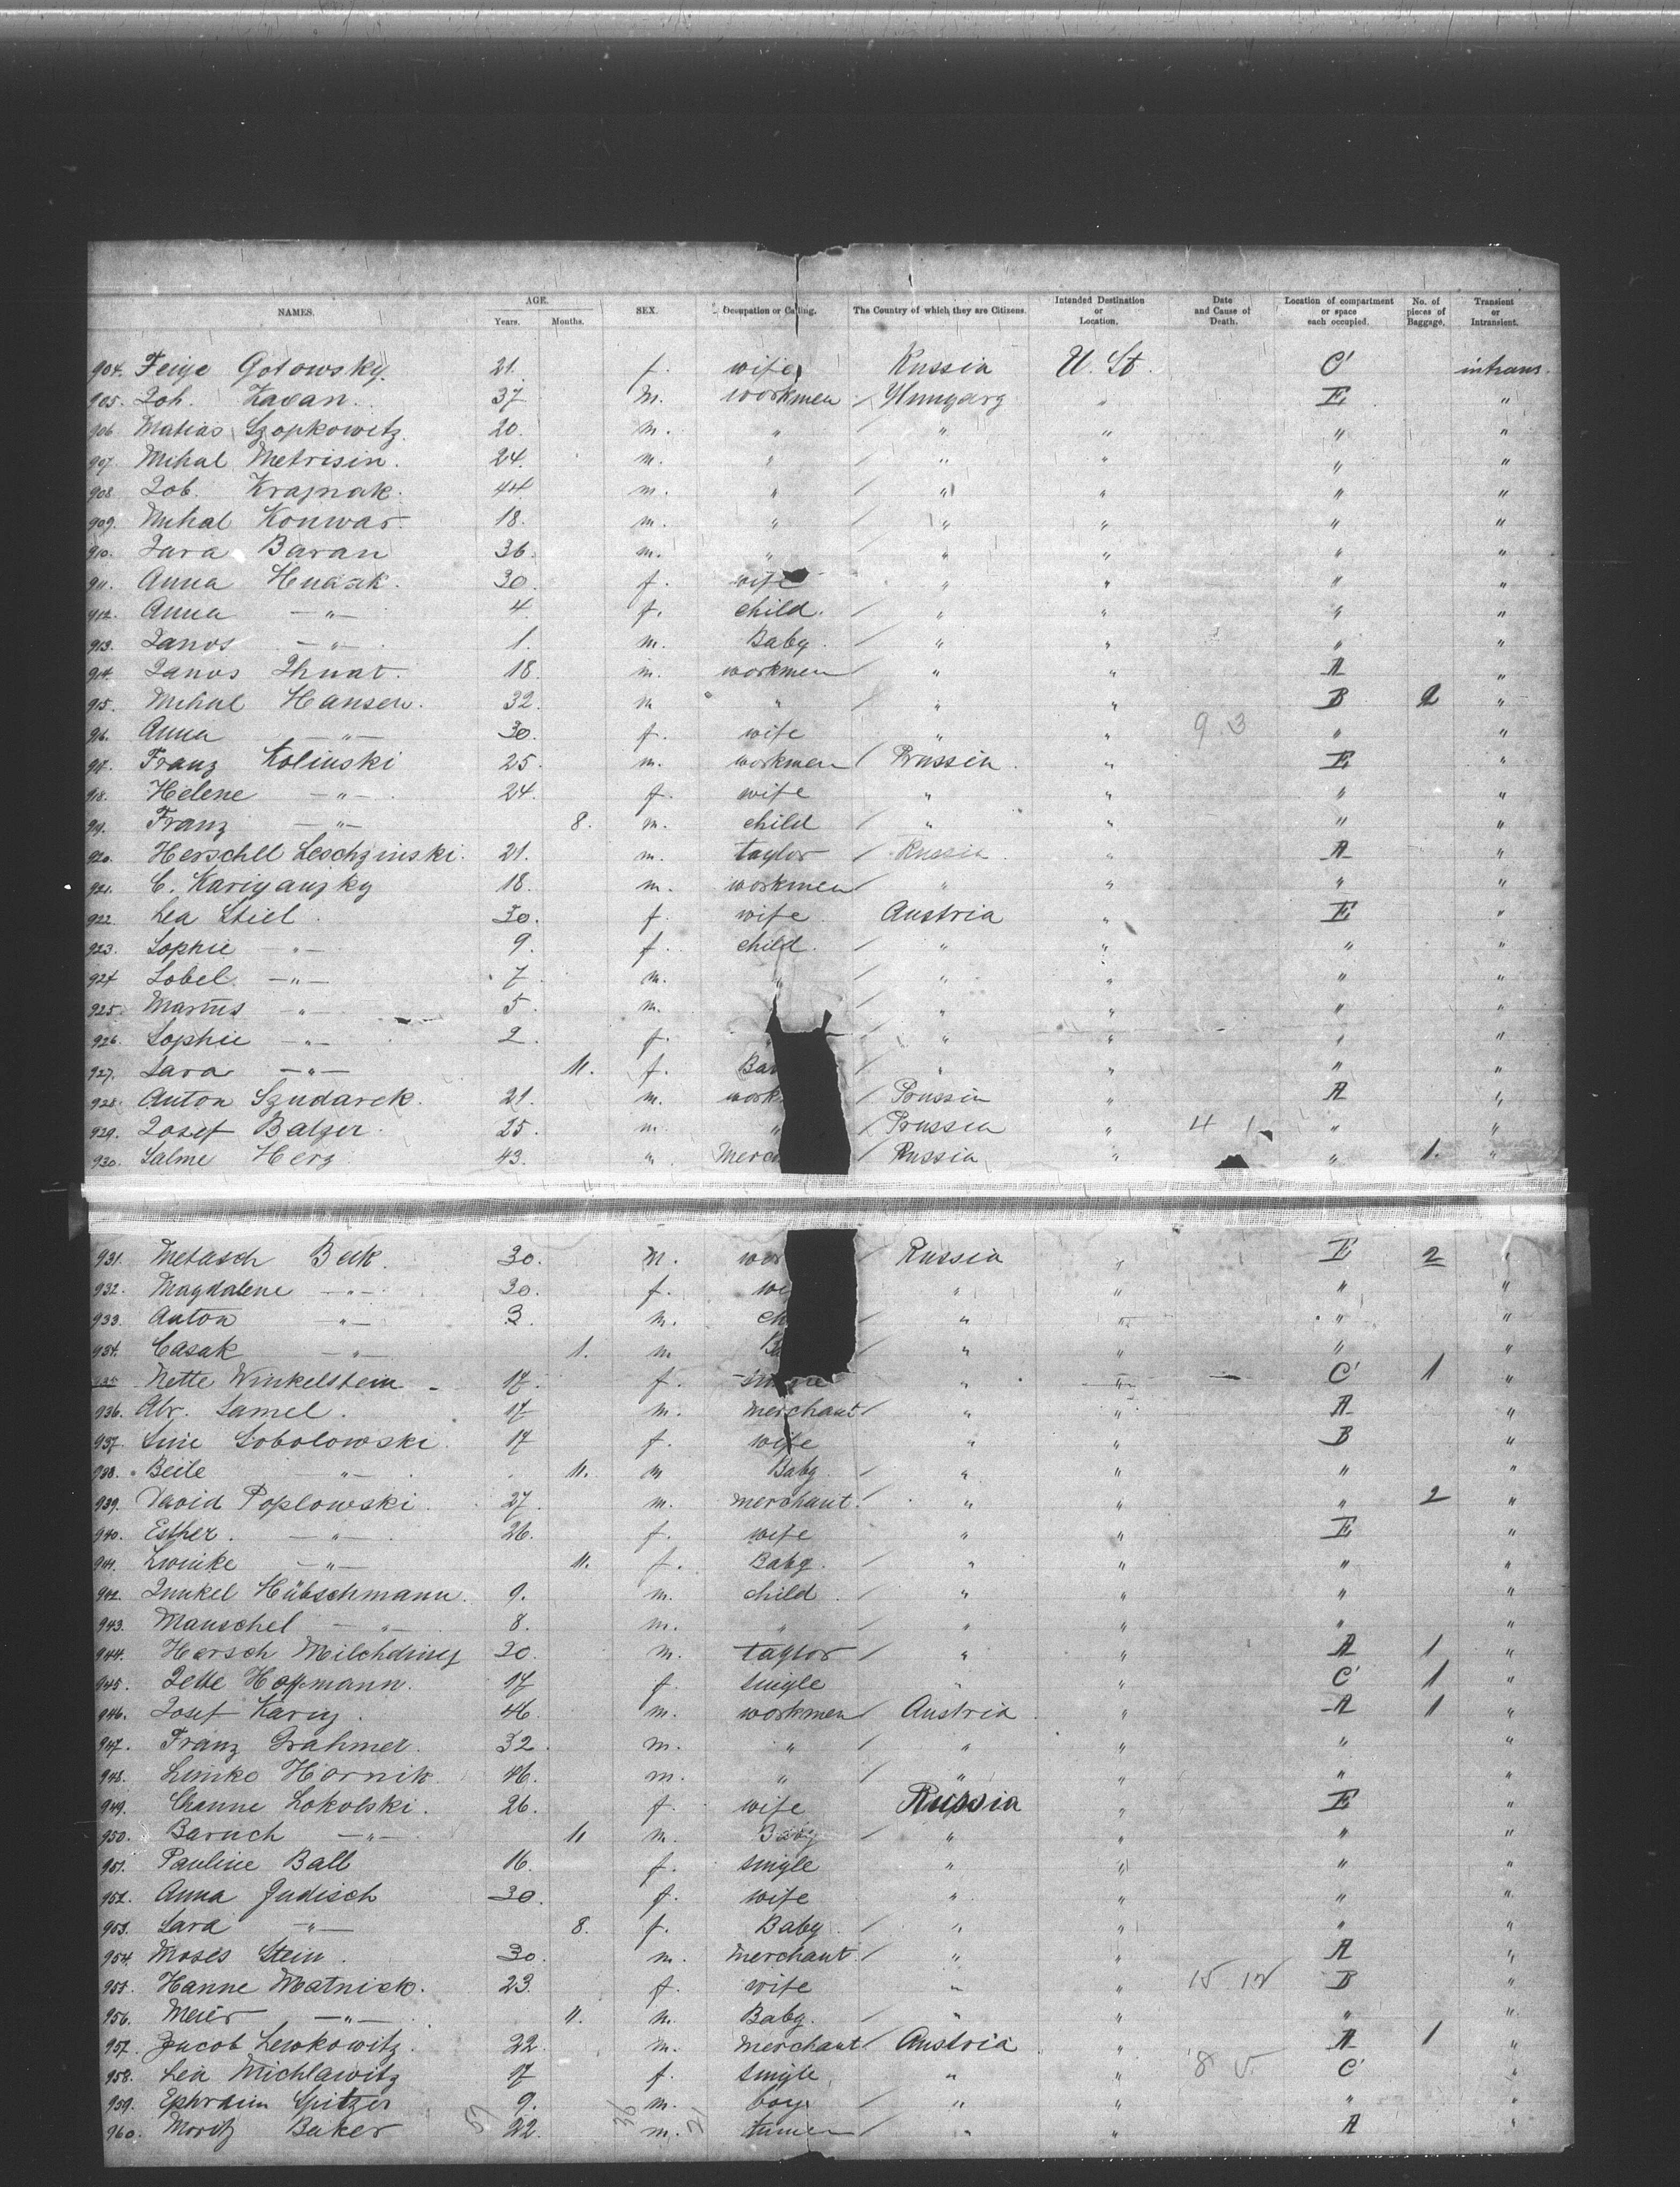 NAMES. AGE. Years. Months. SEX. Occupation or Calling. The Country of which they are Citizens. Intended Destination or Location. Date and Cause of Death. Location of compartment or space each occupied. No. of pieces of Baggage. Transient or Intransient.
904. Feige Gotowsky. 21. f. wife Russia U. St. C intrans.
905. Joh. Zavan. 37 m. workmen / Hungarg " E "
906. Matias Szopkowitz. 20. m. " / " " " "
907. Mihal Metrisin. 24. m. " / " " " "
908. Job. Krajnak. 44 m. " / " " " "
909. Mihal Konwas. 18. m. " / " " " "
910. Jura Baran 36. m. " / " " " "
911. Anna 30. f. wife " " " "
912. Anna —"— 4 f. child. / " " " "
913. Janos —"— 1. m. Baby. / " " " "
914. Janos 18. m. workmen / " " A "
915. Mihal Hansen. 32. m " / " " B 2 "
916. Anna —"— 30. f. wife " " 9 3 " "
917. Franz Kolinski 25. m. workmen / Prussia " E "
918. Helene —"— 24. f. wife " " " "
919. Franz —"— 8. m. child / " " " "
920. Herschel Leschzinski. 21. m. taylor / Russia " A "
921. C. 18. m. workmen / " " " "
922. Lea Stiel. 30. f. wife. Austria " E "
923. Sophie —"— 9. f. child. / " " " "
924 Lobel. —"— 7 m. " / " " " "
925. —"— 5. m. / " " " "
926. Sophie —"— 2. f. / " " " "
927. Sara —"— 11. f. Ba / " " " "
928. Anton Szudarek. 21. m. work / Prussia " A "
929. Josef Balzer. 25. m. " / Prussia " 4 1 " "
930. Salme Herz 43. " Merc / Russia " " 1. "
931. Metasch Bek. 30. m. wor / Russia " E 2 "
932. Magdalene —"— 30. f. wi " " " "
933. Anton —"— 3. m. ch / " " " "
934. Casak —"— 1. m B / " " " "
935 Nette Winkelstein 17. f. " " C 1 "
936. Abr. Samel. 17 m. merchant / " " A "
937. Sobolowski. 17 f. wife " " B "
938. Beile —"— 11. m Baby. / " " " "
939. David Poplowski. 27. m. merchant. / " " " 2 "
940. Esther. —"— 26. f. wife " " E "
941. —"— 11. f. Baby. / " " " "
942. Junkel Hübschmann. 9. m. child. " " " "
943. Mauschel —"— 8. m. " " " " "
944. Hersch Milchding 20. m. taylor / " " A 1 "
945. Jette Hoffmann. 17 f. single " " C 1 "
946. Josef 46. m. workmen / Austria " A 1 "
947. Franz Grahmer. 32. m. " / " " " "
948. Hornik 46. m. " / " " " "
949. Channe Sokolski. 26. f. wife Russia " E "
950. Baruch —"— 11 m. Baby / " " " "
951. Pauline Ball 16. f. single " " " "
952. Anna Judisch 30. f. wife " " " "
953. Sara —"— 8. f. Baby. / " " " "
954. Moses Stein. 30. m. merchant. / " " A "
955. Hanne Matnick. 23. f. wife " " 15 12 B "
956. Meier —"— 11. m. Baby. / " " " "
957. Jacob Lewkowitz. 22. m. merchant / Austria " A 1 "
958. Lea Michlawitz 17 f. single. " " 8 5 C "
959. Ephraim Spitzer 9. m. boy. / " " " "
960. Moritz Baker 22. m. / " " A "